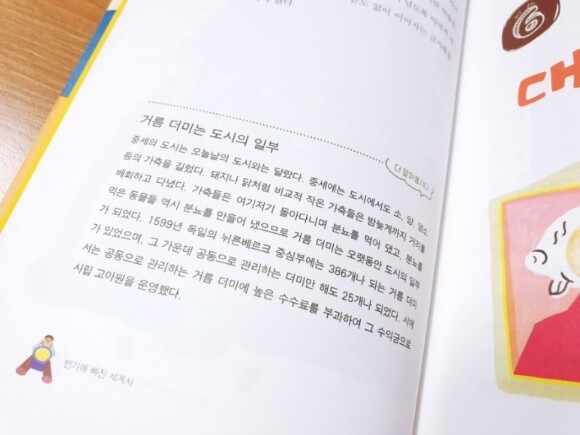 없이 이어지는
거름 더미는 도시의 일부
더 알아봅시다
중세의 도시는 오늘날의 도시와는 달랐다. 중세에는 도시에서도 소, 양, 염소
등의 가축을 길렀다. 돼지나 닭처럼 비교적 작은 가축들은 밤늦게까지 거리를
배회하고 다녔다. 가축들은 여기저기 돌아다니며 분뇨를 먹어 댔고, 분뇨를
먹은 동물들 역시 분뇨를 만들어 냈으므로 거름 더미는 오랫동안 도시의 일부
가 되었다. 1599년 독일의 뉘른베르크 중심부에는 386개나 되는 거름 더미
가 있었으며, 그 가운데 공동으로 관리하는 더미만 해도 25개나 되었다. 시에
서는 공동으로 관리하는 거름 더미에 높은 수수료를 부과하여 그 수익금으로
시립 고아원을 운영했다.
변기에 빠진 세계사
CH